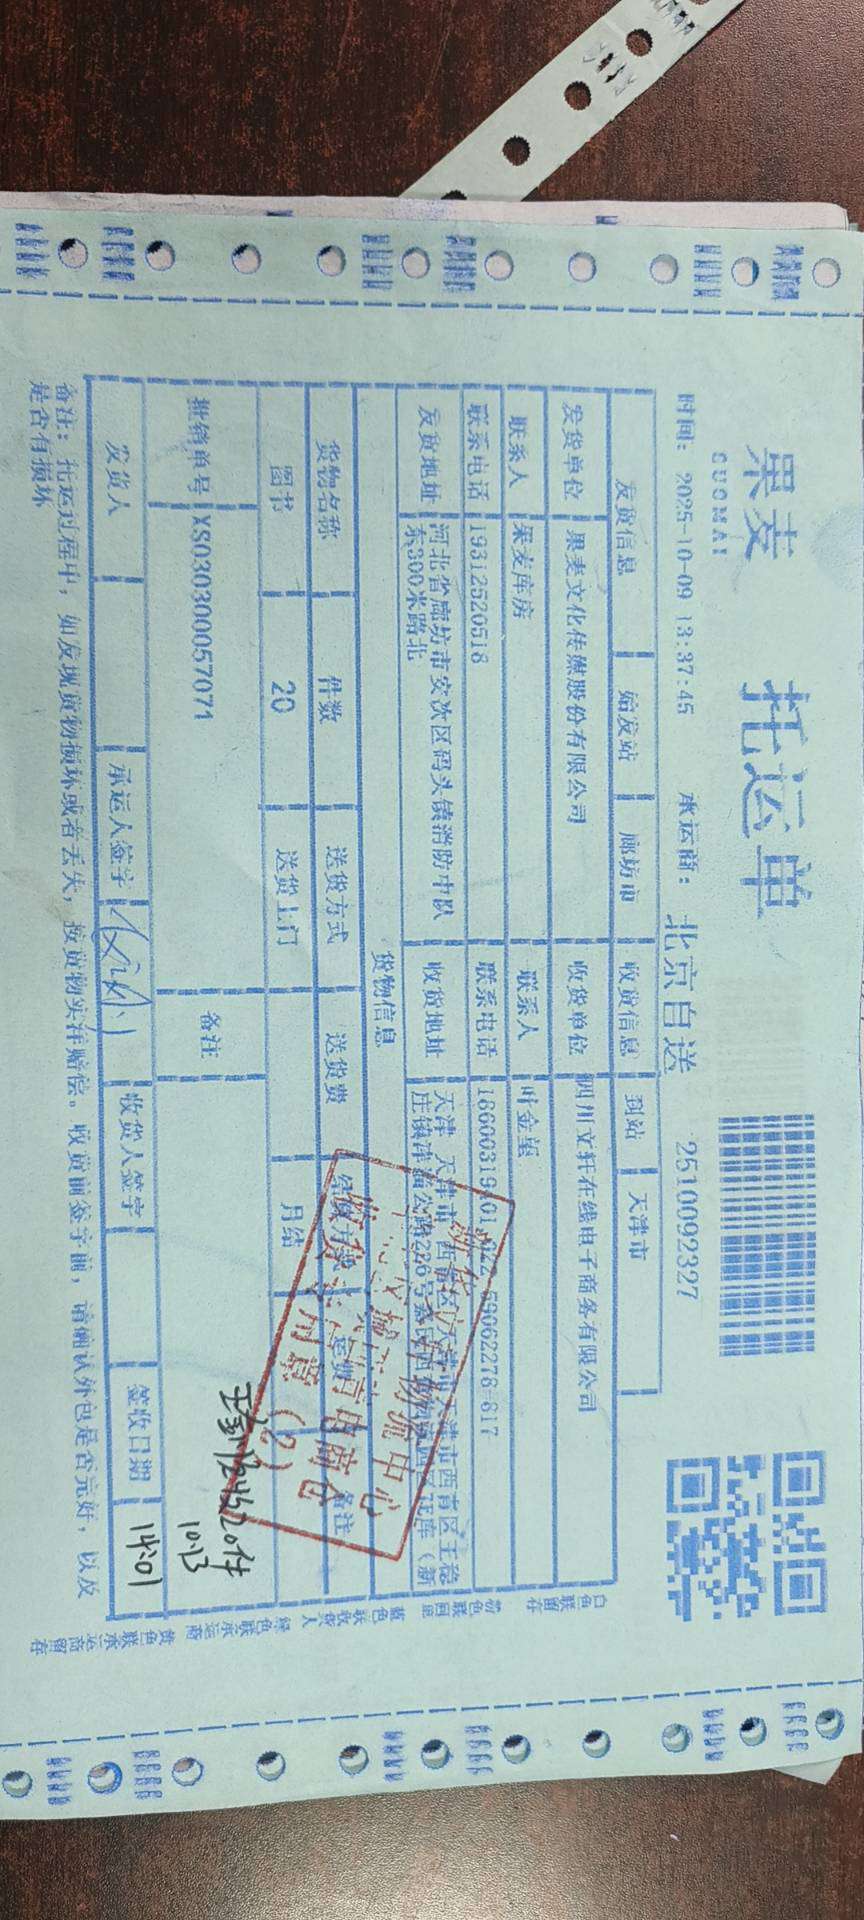 果麦
GUOMAI
托运单
时间: 2025-10-09 13:37:45 承运商: 北京自送 2510092327
发货信息 始发站 廊坊市 收货信息 到站 天津市
发货单位 果麦文化传媒股份有限公司 收货单位 四川文轩在线电子商务有限公司
联系人 果麦库房 联系人 叶金玺
联系电话 19312520518 联系电话
发货地址 河北省廊坊市安次区码头镇消防中队东300米路北 收货地址 天津 天津市
货物信息
货物名称 件数 送货方式 送货费 备注
图书 20 送货上门 月结
批销单号 XS030300057071 备注
发货人 承运人签字 收货人签字 签收日期 14:01
20件
10.13
物流中心
(2)
备注: 托运过程中, 如发现货物损坏或者丢失, 按货物实洋赔偿。收货前签字前, 请确认外包是否完好, 以及
是否有损坏
白色联留存
粉色联回单
蓝色联收货人
绿色联承运商
黄色联承运商留存